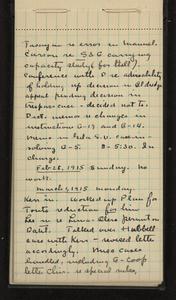 Tracing in re error in Manual.
Carson in re S&G carrying
capacity study (for Hall?).
Conference with D re advisability
of holding up decision in Eldredge
appeal pending decision in
trespass case - decided not to.
Dist. memo re changes in
instructions G-17 and G-14.
Memo in re
solving G-5. 8 - 5:30. In
charge.
Feb. 28, 1915 Sunday. No
work.
March 1, 1915 Monday.
Kerr in. Worked up Plan for
Tonto reduction for him
Les in re Permit on
Datil. Talked over Hubbell
case with Kerr - revised letter
accordingly. Misc cases
handled, including G-Coop
letter Chiri. re special rules,